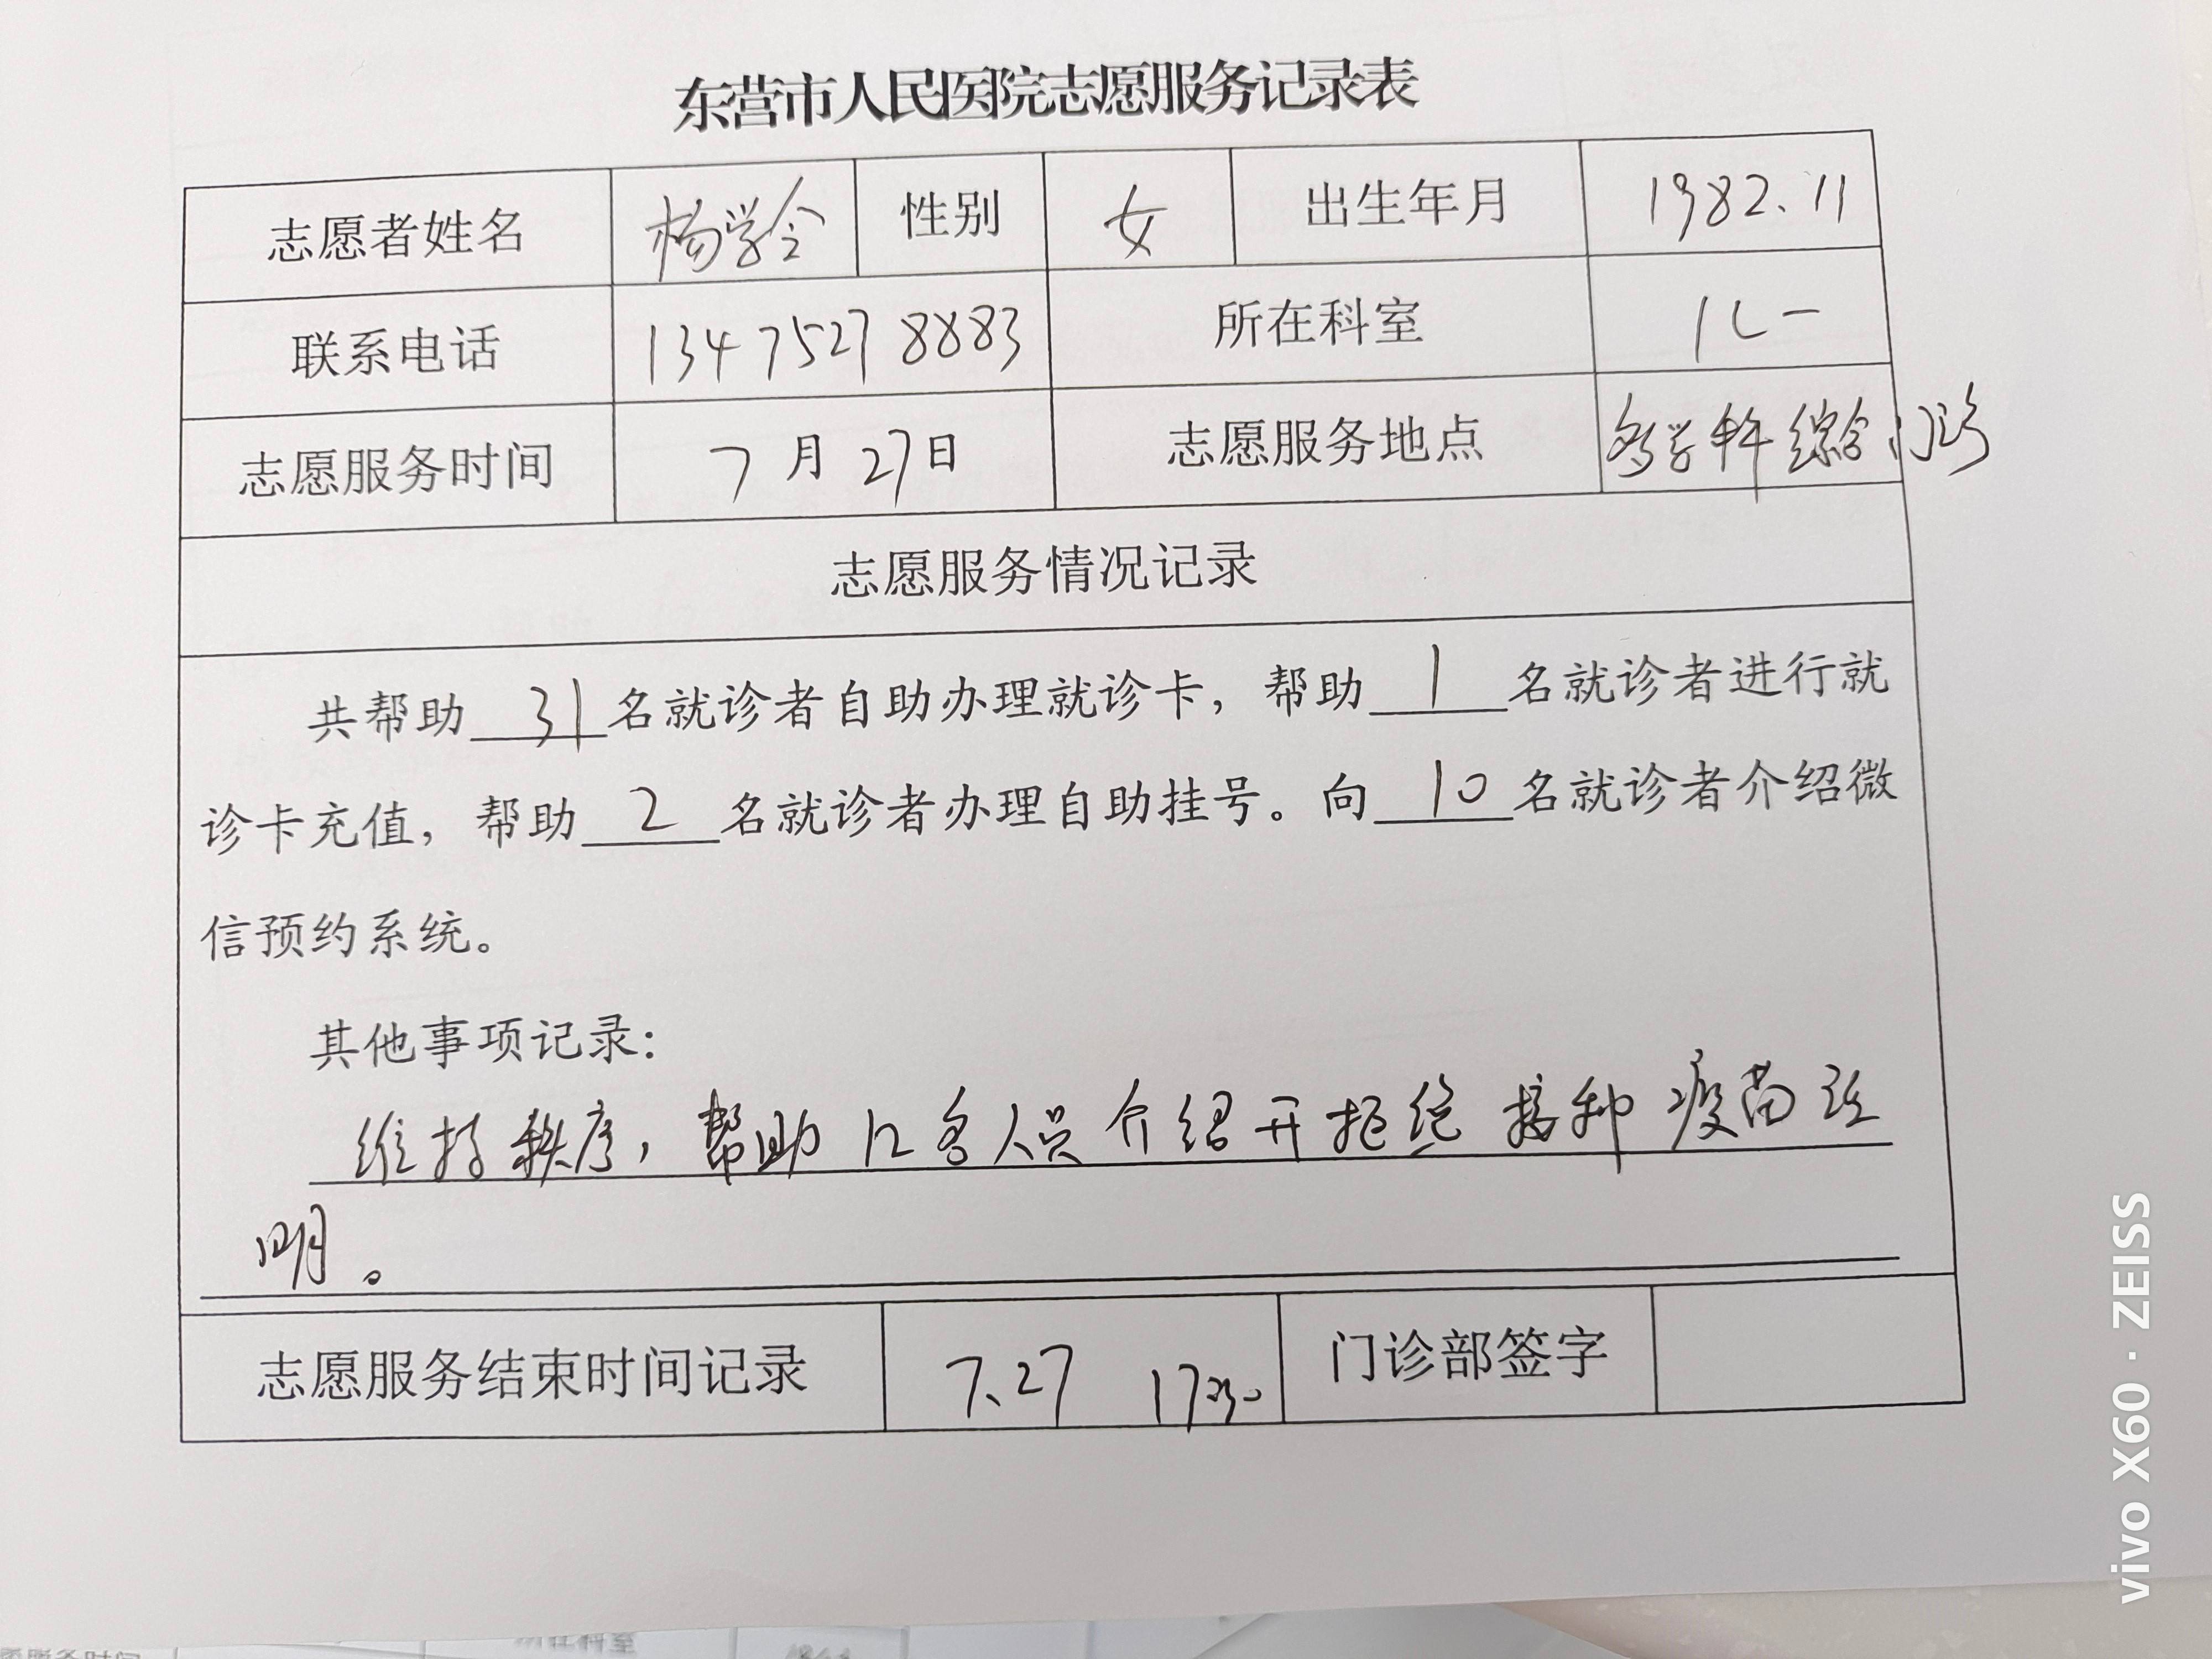 东营市人民医院志愿服务记录表
志愿者姓名 杨学令 性别 女 出生年月 1982.11
联系电话 13475278883 所在科室 儿一
志愿服务时间 7月27日 志愿服务地点 多学科综合门诊
志愿服务情况记录
共帮助31名就诊者自助办理就诊卡，帮助1名就诊者进行就
诊卡充值，帮助2名就诊者办理自助挂号。向10名就诊者介绍微
信预约系统。
其他事项记录：
维持秩序，帮助12名人员介绍开拒绝接种疫苗证
明。
志愿服务结束时间记录 7.27 17:30 门诊部签字
vivo X60 · ZEISS
所在科室